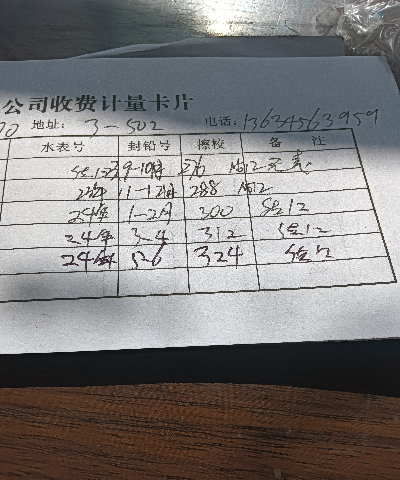 公司收费计量卡片
地址: 3-502 电话: 13634563959
水表号 封铅号 擦校 备 注
9-10月
23年 11-12月 288
24年 1-2月 300 结12
24年 3-4 312 结12
24年 5-6 324 结12